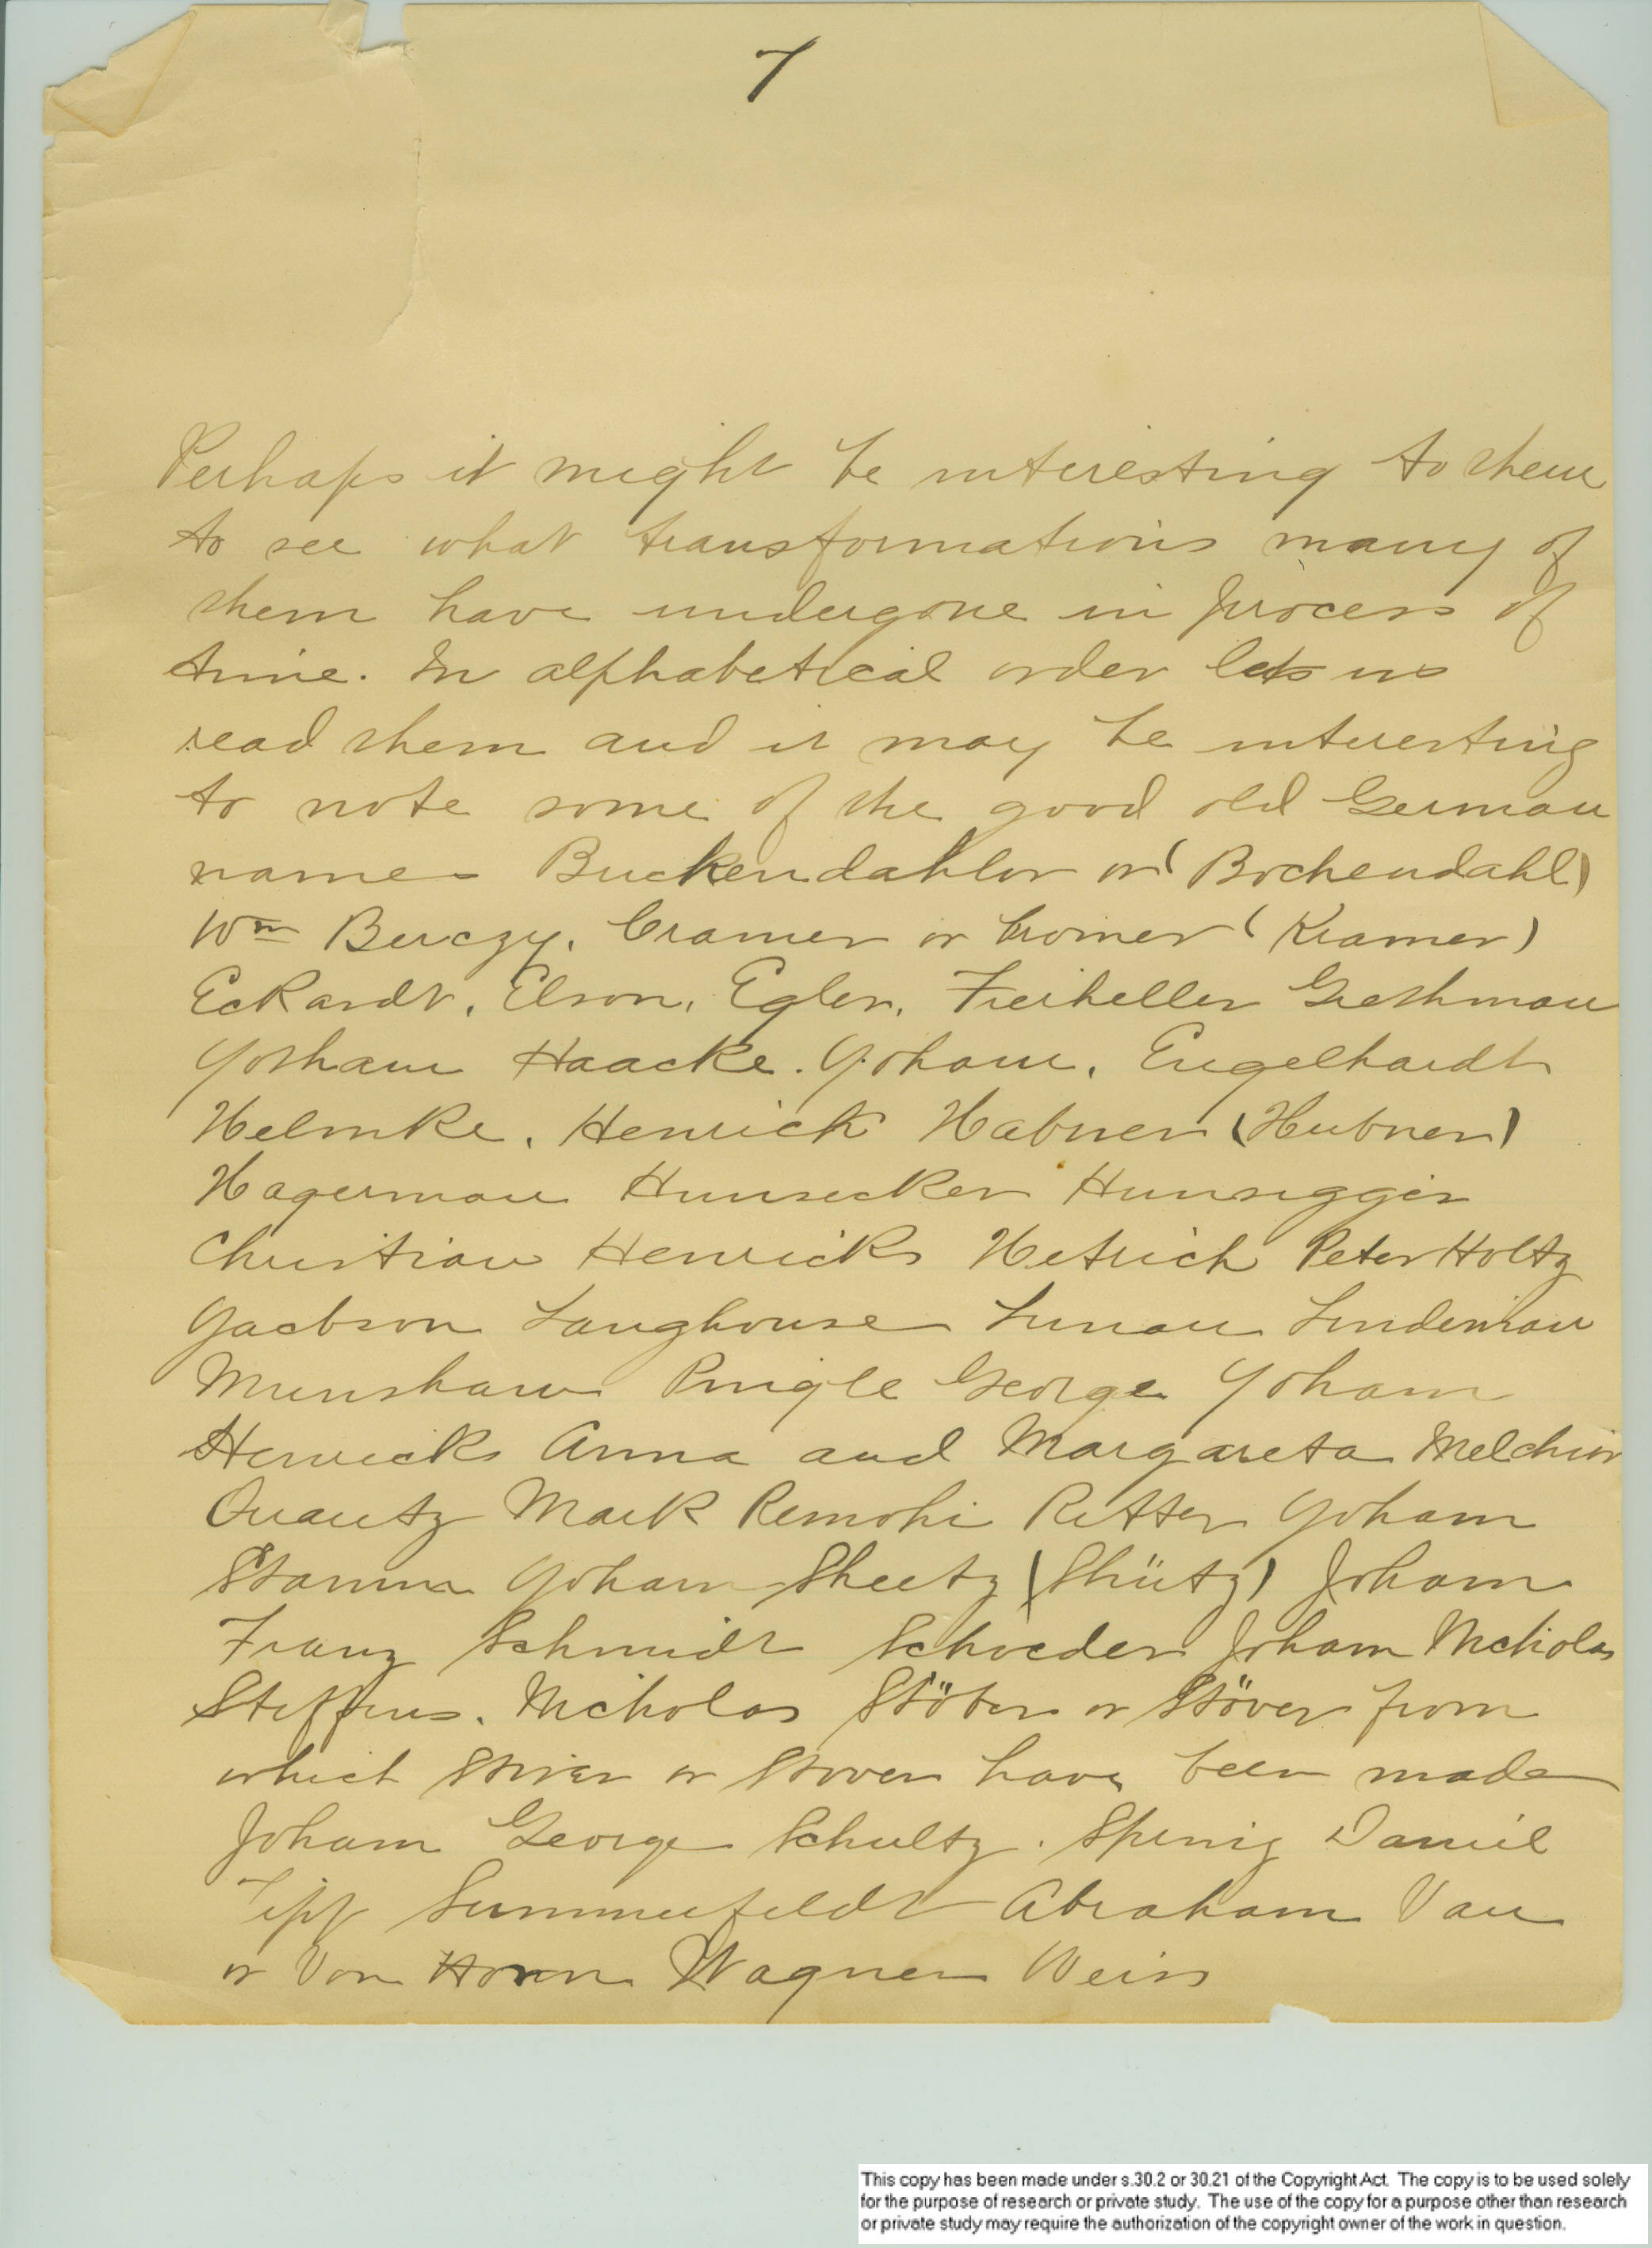 7
Perhaps it might be interesting to them
to see what transformations many of
them have undergone in process of
time. In alphabetical order lets us
read them and it may be interesting
to note some of the good old German
names Buckendahlor or (Bochendahl)
Wm Berczy, Cramer or Cromer (Kramer)
Eckardt, Elson, Egler, Freiheller Grethman
Yotham Haacke. Yoham, Engelhardt
Helmke, Henrick Habner (Hubner)
Hagerman Hunsecker Hunsigger
Christian Henricks Hetrich Peter Holtz
Jacbson Langhouse Lunau Lindeman
Munshaw Pingle George Yoham
Henricks Anna and Margareta Melchior
Quantz Mark Remohi Ritter Yoham
Stamm Yoham Sheetz (Shütz) Joham
Franz Schmidt Schoeder Joham Nicholas
Steffens. Nicholas Stöber or Stöver from
which Stiver or Stover have been made
Joham George Schultz. Spenig Daniel
Tipp Summerfeldt Abraham Van
or Von Horn Wagner Weiss
This copy has been made under s.30.2 or 30.21 of the Copyright Act. The copy is to be used solely
for the purpose of research or private study. The use of the copy for a purpose other than research
or private study may require the authorization of the copyright owner of the work in question.